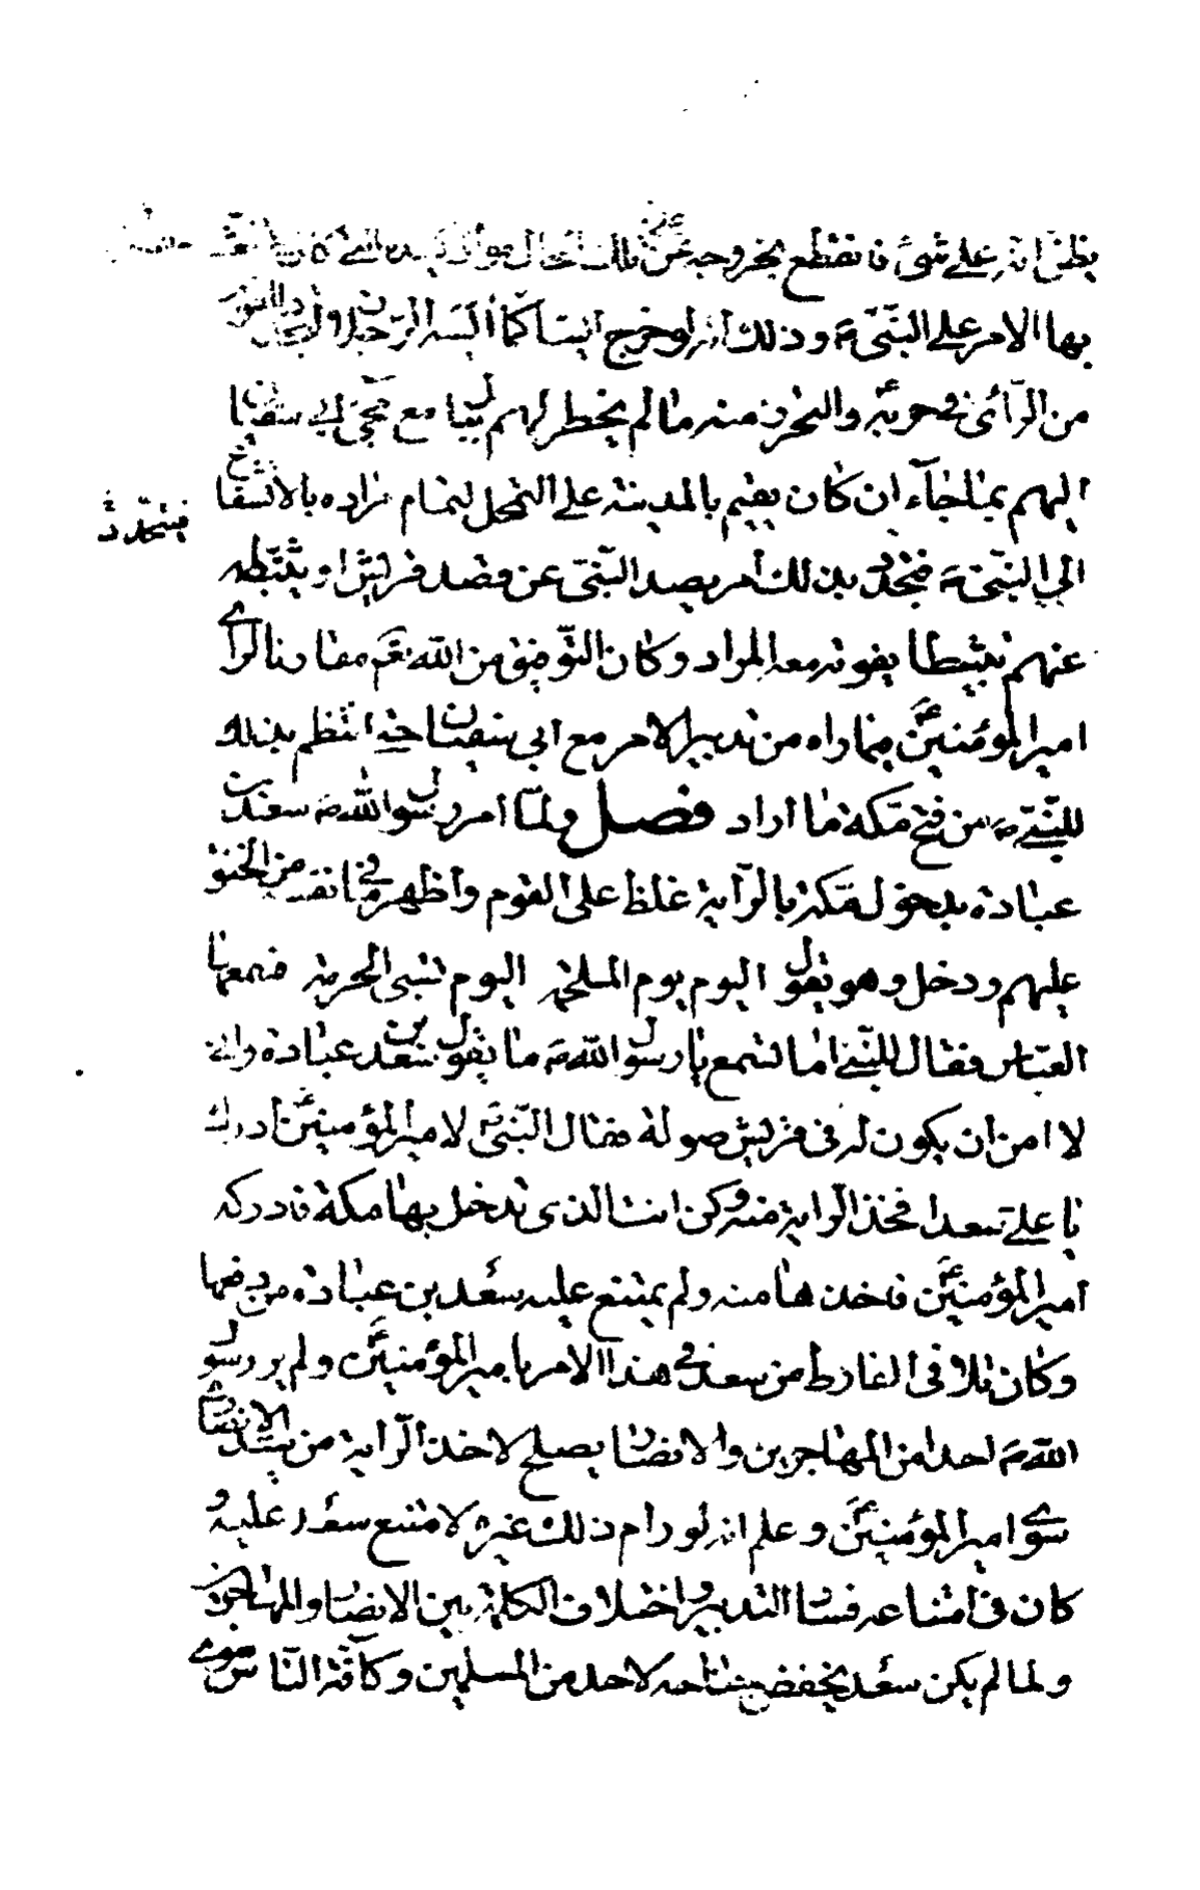 يظنّ انه على شئ فانقطع بخروجه عن تلك الحال
بها الامر على النّبيّ ص وذلك انه لو خرج ايسا كما أيسه الرّجلان لتجدد للقوم
من الرّأى في حربه ع والتحرز منه ما لم يخطر لهم ببال مع مجئ ابي سفيان
اليهم بما جاء ان كان يقيم بالمدينة على التمحل لتمام مراده بالاستشفاع
فيتجدد خ
الى النّبيّ ص فتجدد بذلك أمر يصد النّبيّ عن قصد قريش او يثبّطه
عنهم تثبيطا يفوته معه المراد وكان التّوفيق من الله تعم مقارنا لرأي
امير المؤمنين ع فيما راه من تدبير الامر مع ابي سفيان حتى انتظم بذلك
للنّبيّ ص من فتح مكة ما اراد فصل ولمّا امر رسول الله ص سعد بن
عبادة بدخول مكة بالرّاية غلظ على القوم واظهر ما في نفسه من الحنق
عليهم ودخل وهو يقول اليوم يوم الملحمة اليوم تسبى الحرمة فسمعها
العبّاس فقال للنّبيّ اما تسمع يا رسول الله ص ما يقول سعد بن عبادة واني
لا امن ان يكون له في قريش صولة فقال النّبيّ ص لامير المؤمنين ع ادرك
يا على سعدا فخذ الرّاية منه وكن انت الذى تدخل بها مكة فادركه
امير المؤمنين ع فاخذها منه ولم يمتنع عليه سعد بن عبادة من دفعها
وكان تلافى الفارط من سعد في هذا الامر بامير المؤمنين ع ولم ير رسول
الله ص احدا من المهاجرين والانصار يصلح لاخذ الرّاية من سيّد الانصار
سوى امير المؤمنين ع وعلم انه لو رام ذلك غيره لامتنع سعد عليه و
كان في امتناعه فساد التدبير واختلاف الكلمة بين الانصار والمهاجرين
ولما لم يكن سعد يخفض جناحه لاحد من المسلمين وكافّة النّاس سوى